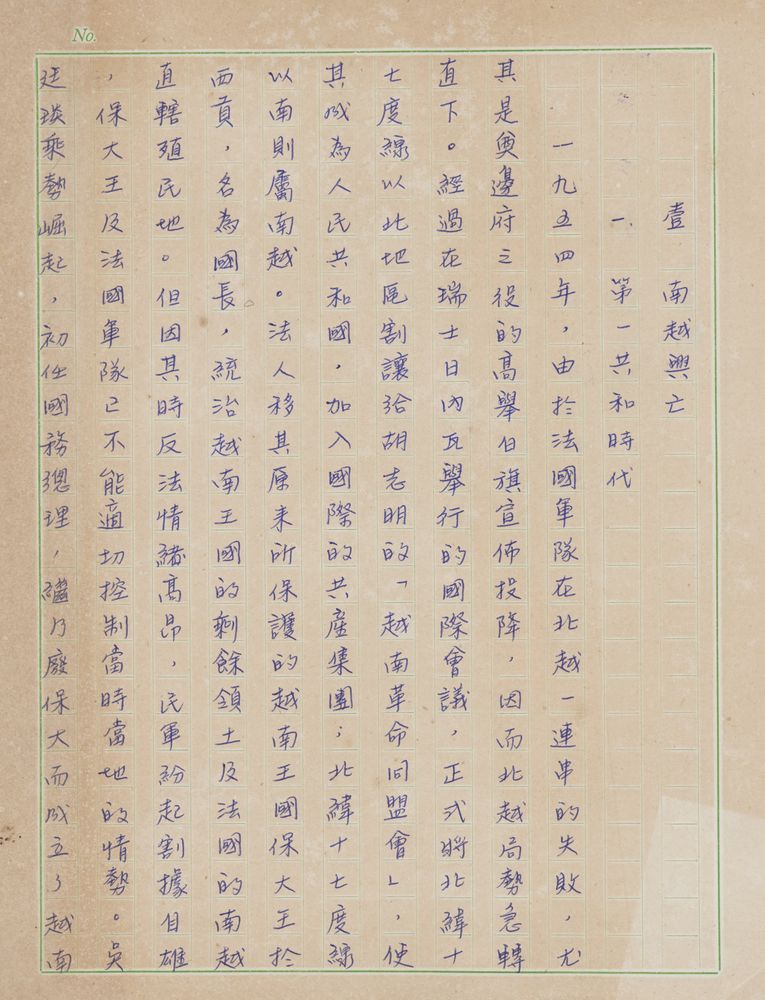 No.
壹 南越興亡
一、第一共和時代
一九五四年，由於法國軍隊在北越一連串的失敗，尤
其是奠邊府之役的高舉白旗宣佈投降，因而北越局勢急轉
直下。經過在瑞士日內瓦舉行的國際會議，正式將北緯十
七度線以北地區割讓給胡志明的「越南革命同盟會」，使
其成為人民共和國，加入國際的共產集團；北緯十七度線
以南則屬南越。法人移其原來所保護的越南王國保大王於
西貢，名為國長，統治越南王國的剩餘領土及法國的南越
直轄殖民地。但因其時反法情緒高昂，民軍紛起割據自雄
，保大王及法國軍隊已不能適切控制當時當地的情勢。吳
廷琰乘勢崛起，初任國務總理，繼乃廢保大而成立了越南